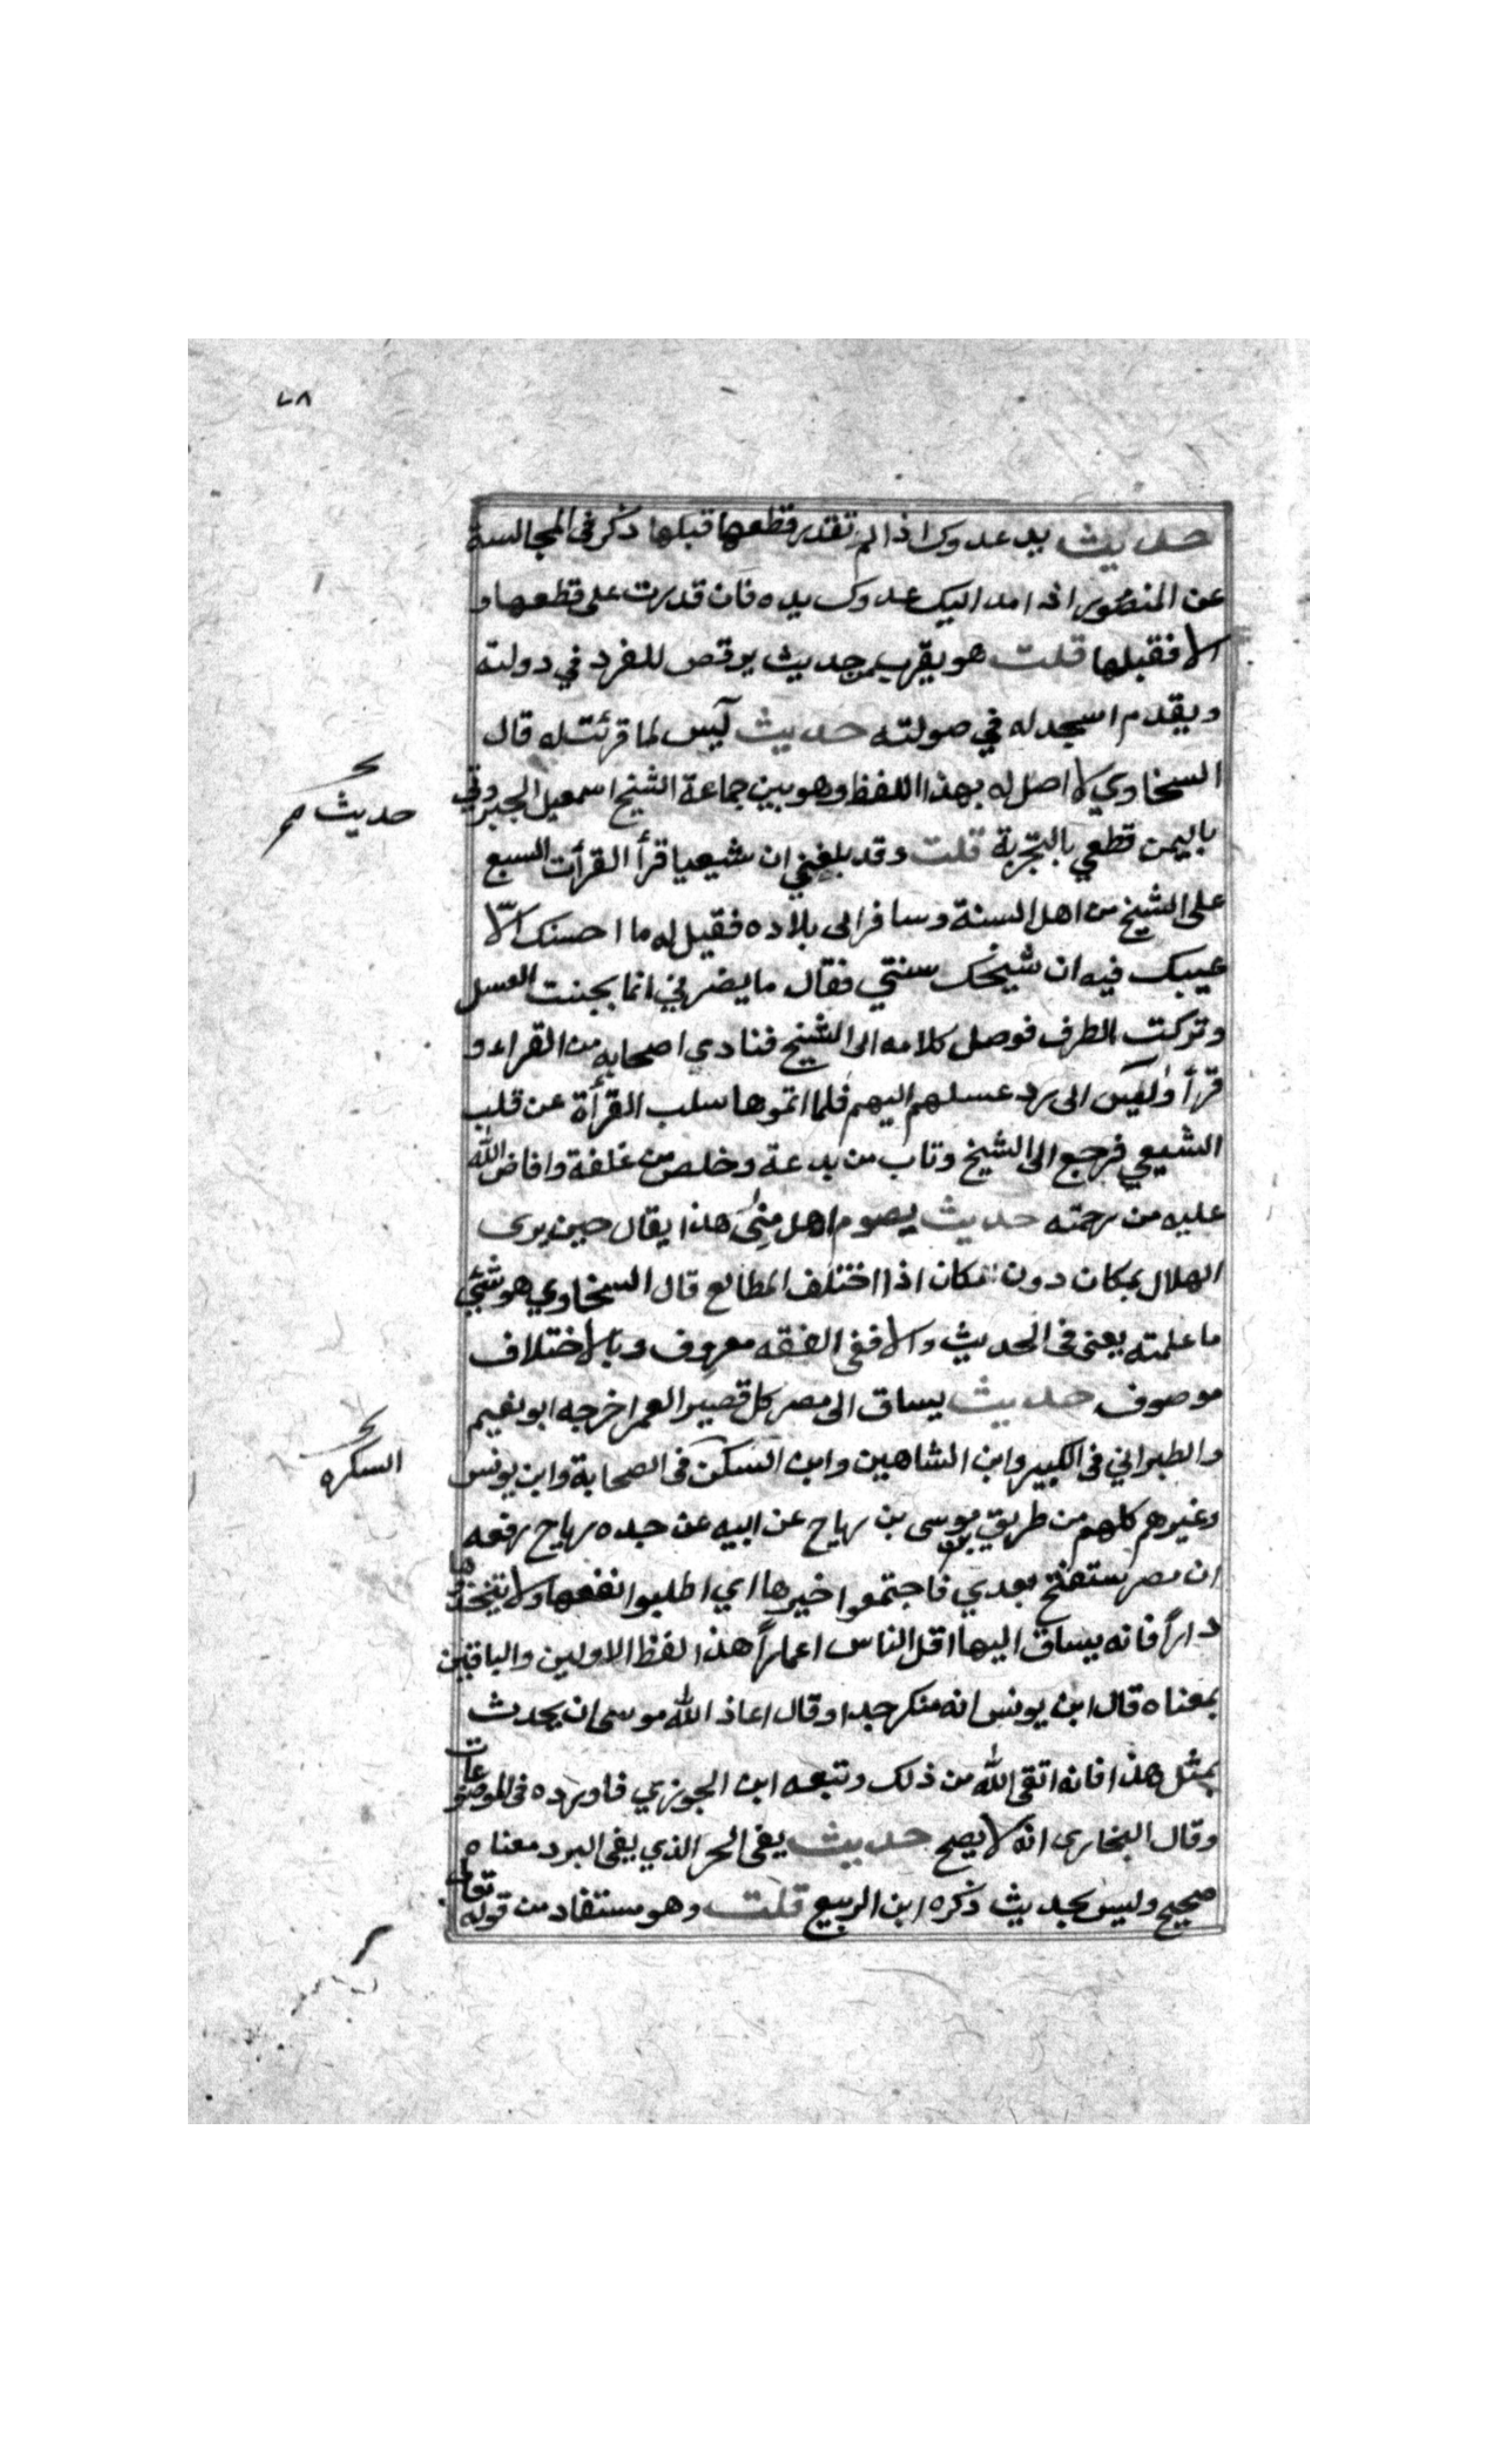 ٧٨
حديث يد عدوك اذا لم تقدر قطعها قبلها ذكر في المجالسة
عن المنصور اذا مد اليك عدوك يده فان قدرت على قطعها و
الا فقبلها قلت هو يقرب من حديث يرقص للقرد في دولته
ويقدم اسجد له في صولته حديث يٓس لما قرئت له قال
السخاوي لا اصل له بهذا اللفظ وهو بين جماعة الشيخ اسمعيل الجبروتي
باليمن قطعي بالتجربة قلت وقد بلغني ان شيعيا قرأ القرأت السبع
على الشيخ من اهل السنة وسافر الى بلاده فقيل له ما احسنك الّا
عيبك فيه ان شيخك سنتي فقال ما يضرني انما بجنت العسل
وتركت الظرف فوصل كلامه الى الشيخ فنادي اصحابه من القراء و
قرأوا يٓس الى رد عسلهم اليهم فلما اتموها سلب القرأة عن قلب
الشيعي فرجع الى الشيخ وتاب من بدعة وخلص من غلفة وافاض الله
عليه من رحمته حديث يصوم اهل منى هذا يقال حين يرى
الهلال بمكان دون مكان اذا اختلف المطالع قال السخاوي هو شئ
ما علمته يعنى في الحديث والا ففى الفقه معروف وبالاختلاف
موصوف حديث يساق الى مصر كل قصير العمر اخرجه ابو نعيم
والطبراني في الكبير وابن الشاهين وابن السكن في الصحابة وابن يونس
وغيرهم كلهم من طريق موسى بن رباح عن ابيه عن جده رباح رفعه
ان مصر ستفتح بعدي فاجتمعوا خيرها اي اطلبوا نفعها ولا تتخذوها
داراً فانه يساق اليها اقل الناس اعماراً هذا لفظ الاولين والباقين
بمعناه قال ابن يونس انه منكر جدا وقال اعاذ الله موسى ان يحدث
بمثل هذا فانه اتقى الله من ذلك وتبعه ابن الجوزي فاورده في الموضوعات
وقال البخارى انه لا يصح حديث يقى الحر الذي يقى البرد معناه
صحيح وليس بحديث ذكره ابن الربيع قلت وهو مستفاد من قوله تعالى
حديث
السكره